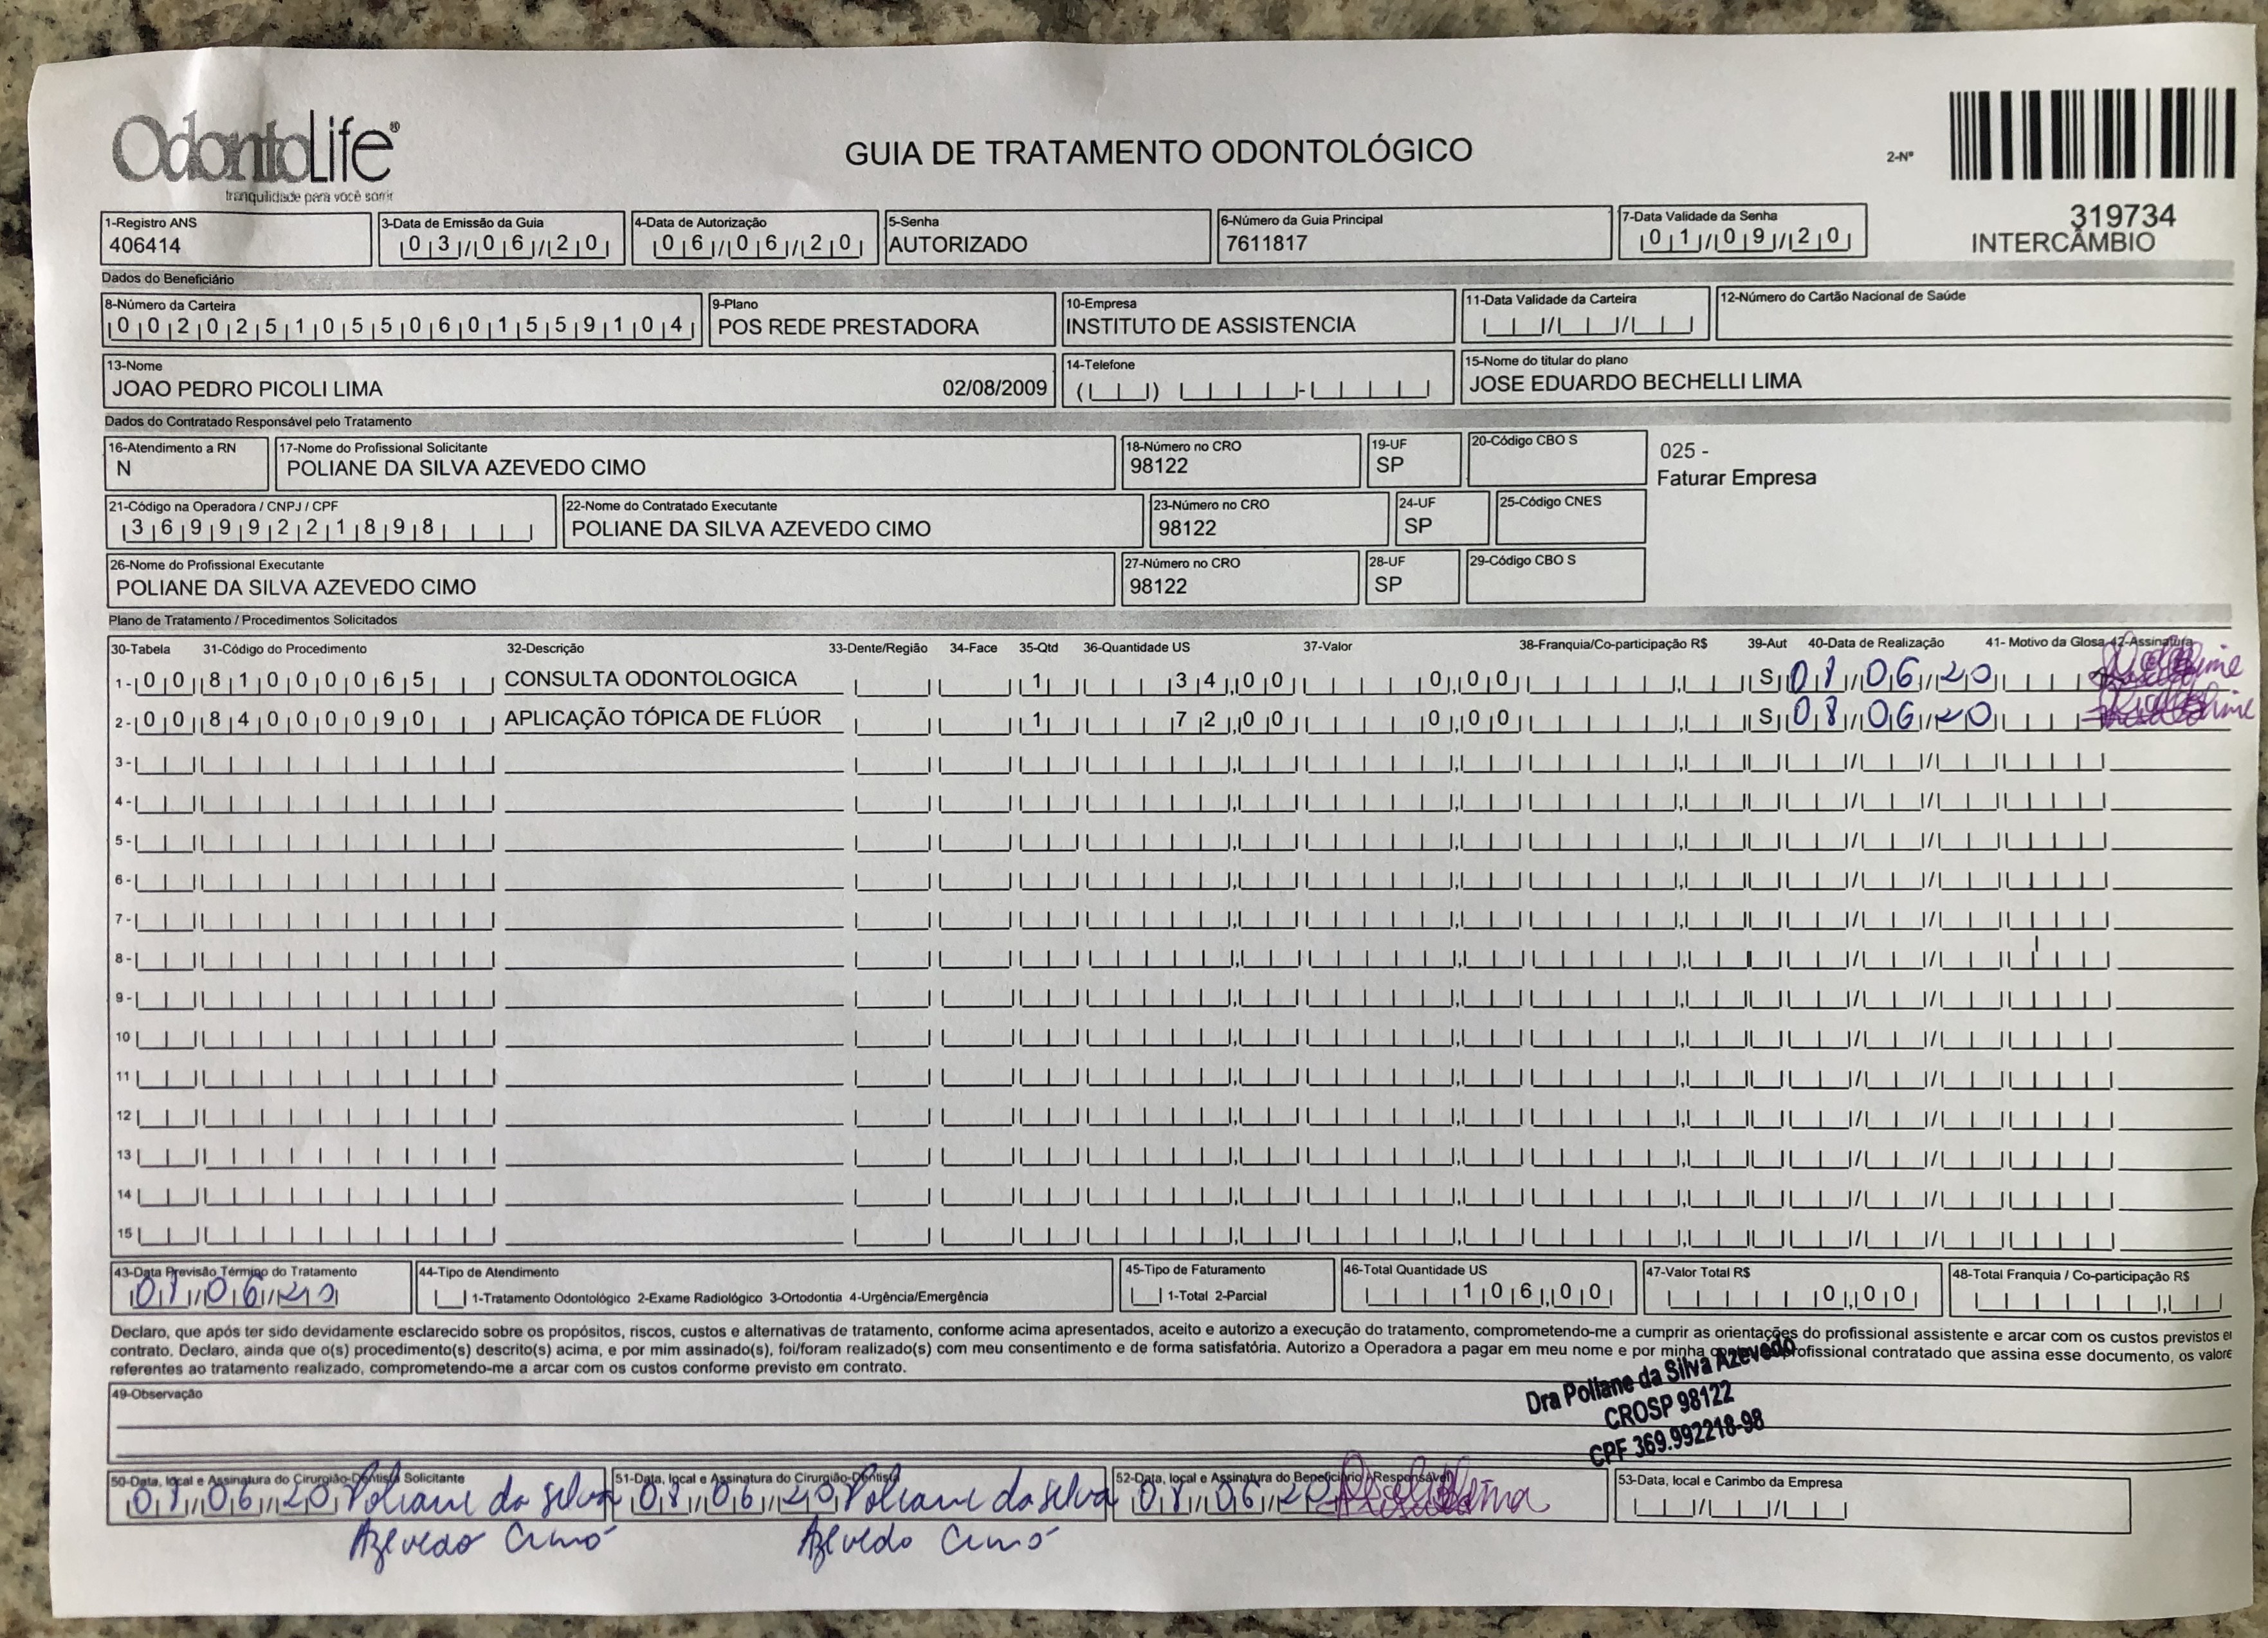 OdontoLife®
tranquilidade para você sorrir
GUIA DE TRATAMENTO ODONTOLÓGICO
2-Nº
319734
INTERCÂMBIO
1-Registro ANS
406414
3-Data de Emissão da Guia
03/06/20
4-Data de Autorização
06/06/20
5-Senha
AUTORIZADO
6-Número da Guia Principal
7611817
7-Data Validade da Senha
01/09/20
Dados do Beneficiário
8-Número da Carteira
00202510550601559104
9-Plano
POS REDE PRESTADORA
10-Empresa
INSTITUTO DE ASSISTENCIA
11-Data Validade da Carteira
12-Número do Cartão Nacional de Saúde
13-Nome
JOAO PEDRO PICOLI LIMA 02/08/2009
14-Telefone
15-Nome do titular do plano
JOSE EDUARDO BECHELLI LIMA
Dados do Contratado Responsável pelo Tratamento
16-Atendimento a RN
N
17-Nome do Profissional Solicitante
POLIANE DA SILVA AZEVEDO CIMO
18-Número no CRO
98122
19-UF
SP
20-Código CBO S
025 -
Faturar Empresa
21-Código na Operadora / CNPJ / CPF
36999221898
22-Nome do Contratado Executante
POLIANE DA SILVA AZEVEDO CIMO
23-Número no CRO
98122
24-UF
SP
25-Código CNES
26-Nome do Profissional Executante
POLIANE DA SILVA AZEVEDO CIMO
27-Número no CRO
98122
28-UF
SP
29-Código CBO S
Plano de Tratamento / Procedimentos Solicitados
30-Tabela 31-Código do Procedimento 32-Descrição 33-Dente/Região 34-Face 35-Qtd 36-Quantidade US 37-Valor 38-Franquia/Co-participação R$ 39-Aut 40-Data de Realização 41- Motivo da Glosa 42-Assinatura
1- 00 81000065 CONSULTA ODONTOLOGICA 1 34,00 0,00 S 08/06/20
2- 00 84000090 APLICAÇÃO TÓPICA DE FLÚOR 1 72,00 0,00 S 08/06/20
3-
4-
5-
6-
7-
8-
9-
10
11
12
13
14
15
43-Data Previsão Término do Tratamento
08/06/20
44-Tipo de Atendimento
1-Tratamento Odontológico 2-Exame Radiológico 3-Ortodontia 4-Urgência/Emergência
45-Tipo de Faturamento
1-Total 2-Parcial
46-Total Quantidade US
106,00
47-Valor Total R$
0,00
48-Total Franquia / Co-participação R$
Declaro, que após ter sido devidamente esclarecido sobre os propósitos, riscos, custos e alternativas de tratamento, conforme acima apresentados, aceito e autorizo a execução do tratamento, comprometendo-me a cumprir as orientações do profissional assistente e arcar com os custos previstos
contrato. Declaro, ainda que o(s) procedimento(s) descrito(s) acima, e por mim assinado(s), foi/foram realizado(s) com meu consentimento e de forma satisfatória. Autorizo a Operadora a pagar em meu nome e por minha profissional contratado que assina esse documento, os
referentes ao tratamento realizado, comprometendo-me a arcar com os custos conforme previsto em contrato.
Dra Poliane da Silva Azevedo
CROSP 98122
CPF 369.992218-98
49-Observação
50-Data, local e Assinatura do Cirurgião-Dentista Solicitante
08/06/20 Poliane da Silva
Azevedo Cimó
51-Data, local e Assinatura do Cirurgião-Dentista
08/06/20 Poliane da Silva
Azevedo Cimó
52-Data, local e Assinatura do Beneficiário / Responsável
08/06/20
53-Data, local e Carimbo da Empresa